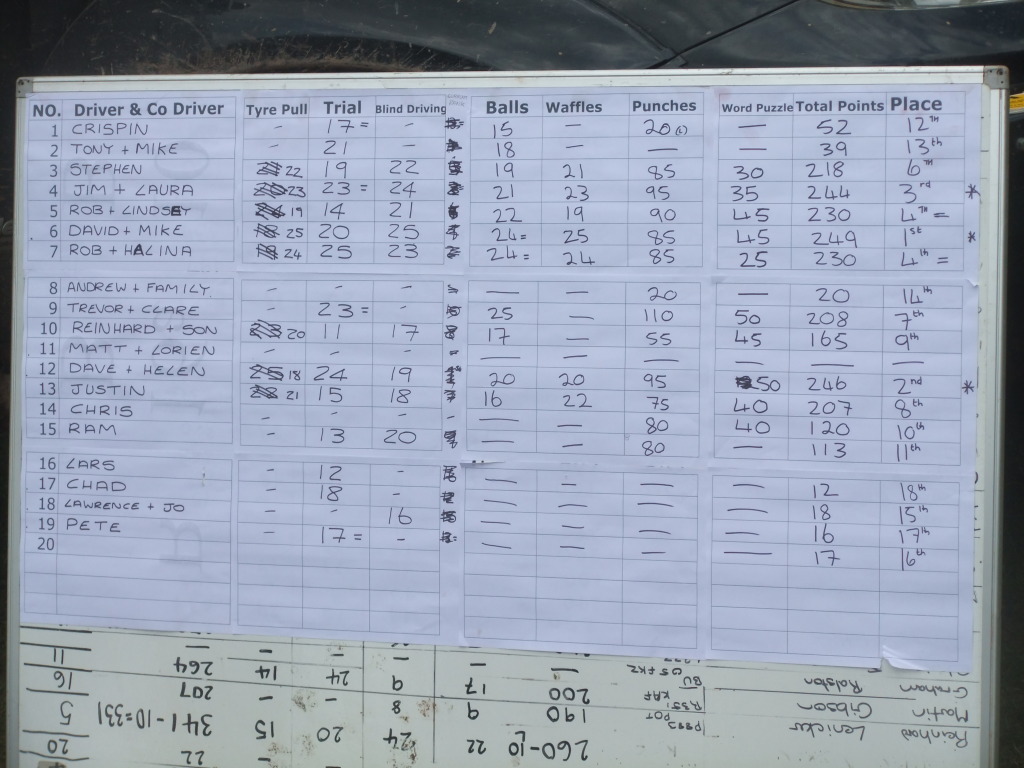 NO. Driver & Co Driver Tyre Pull Trial Blind Driving Balls Waffles Punches Word Puzzle Total Points Place
1 CRISPIN - 17= - 15 — 20 52 12TH
2 TONY + MIKE - 21 - 18 — — — 39 13th
3 STEPHEN 22 19 22 19 21 85 30 218 6TH
4 JIM + LAURA 23 23= 24 21 23 95 35 244 3rd *
5 ROB + LINDSEY 19 14 21 22 19 90 45 230 4TH=
6 DAVID + MIKE 25 20 25 24= 25 85 45 249 1st *
7 ROB + HALINA 24 25 23 24= 24 85 25 230 4th=
8 ANDREW + FAMILY - - - — — 20 — 20 14th
9 TREVOR + CLARE - 23= - 25 — 110 50 208 7th
10 REINHARD + SON 20 11 17 17 — 55 45 165 9th
11 MATT + LORIEN - - - — — — — — —
12 DAVE + HELEN 18 24 19 20 20 95 50 246 2nd *
13 JUSTIN 21 15 18 16 22 75 40 207 8th
14 CHRIS - - - — — 80 40 120 10th
15 RAM - 13 20 — — 80 — 113 11th
16 LARS - 12 - — — — — 12 18th
17 CHAD - 18 - — — — — 18 15th
18 LAWRENCE + JO - - 16 — — — — 16 17th
19 PETE - 17= - — — — — 17 16th
20
11 — 264 14 24 — — — Graham Ralston
16 207 — — 9 17 200 Martin Gibson
5 341-10=331 15 20 8 9 190 Reinhard Lenicker
20 22 — — 24 22 260-10